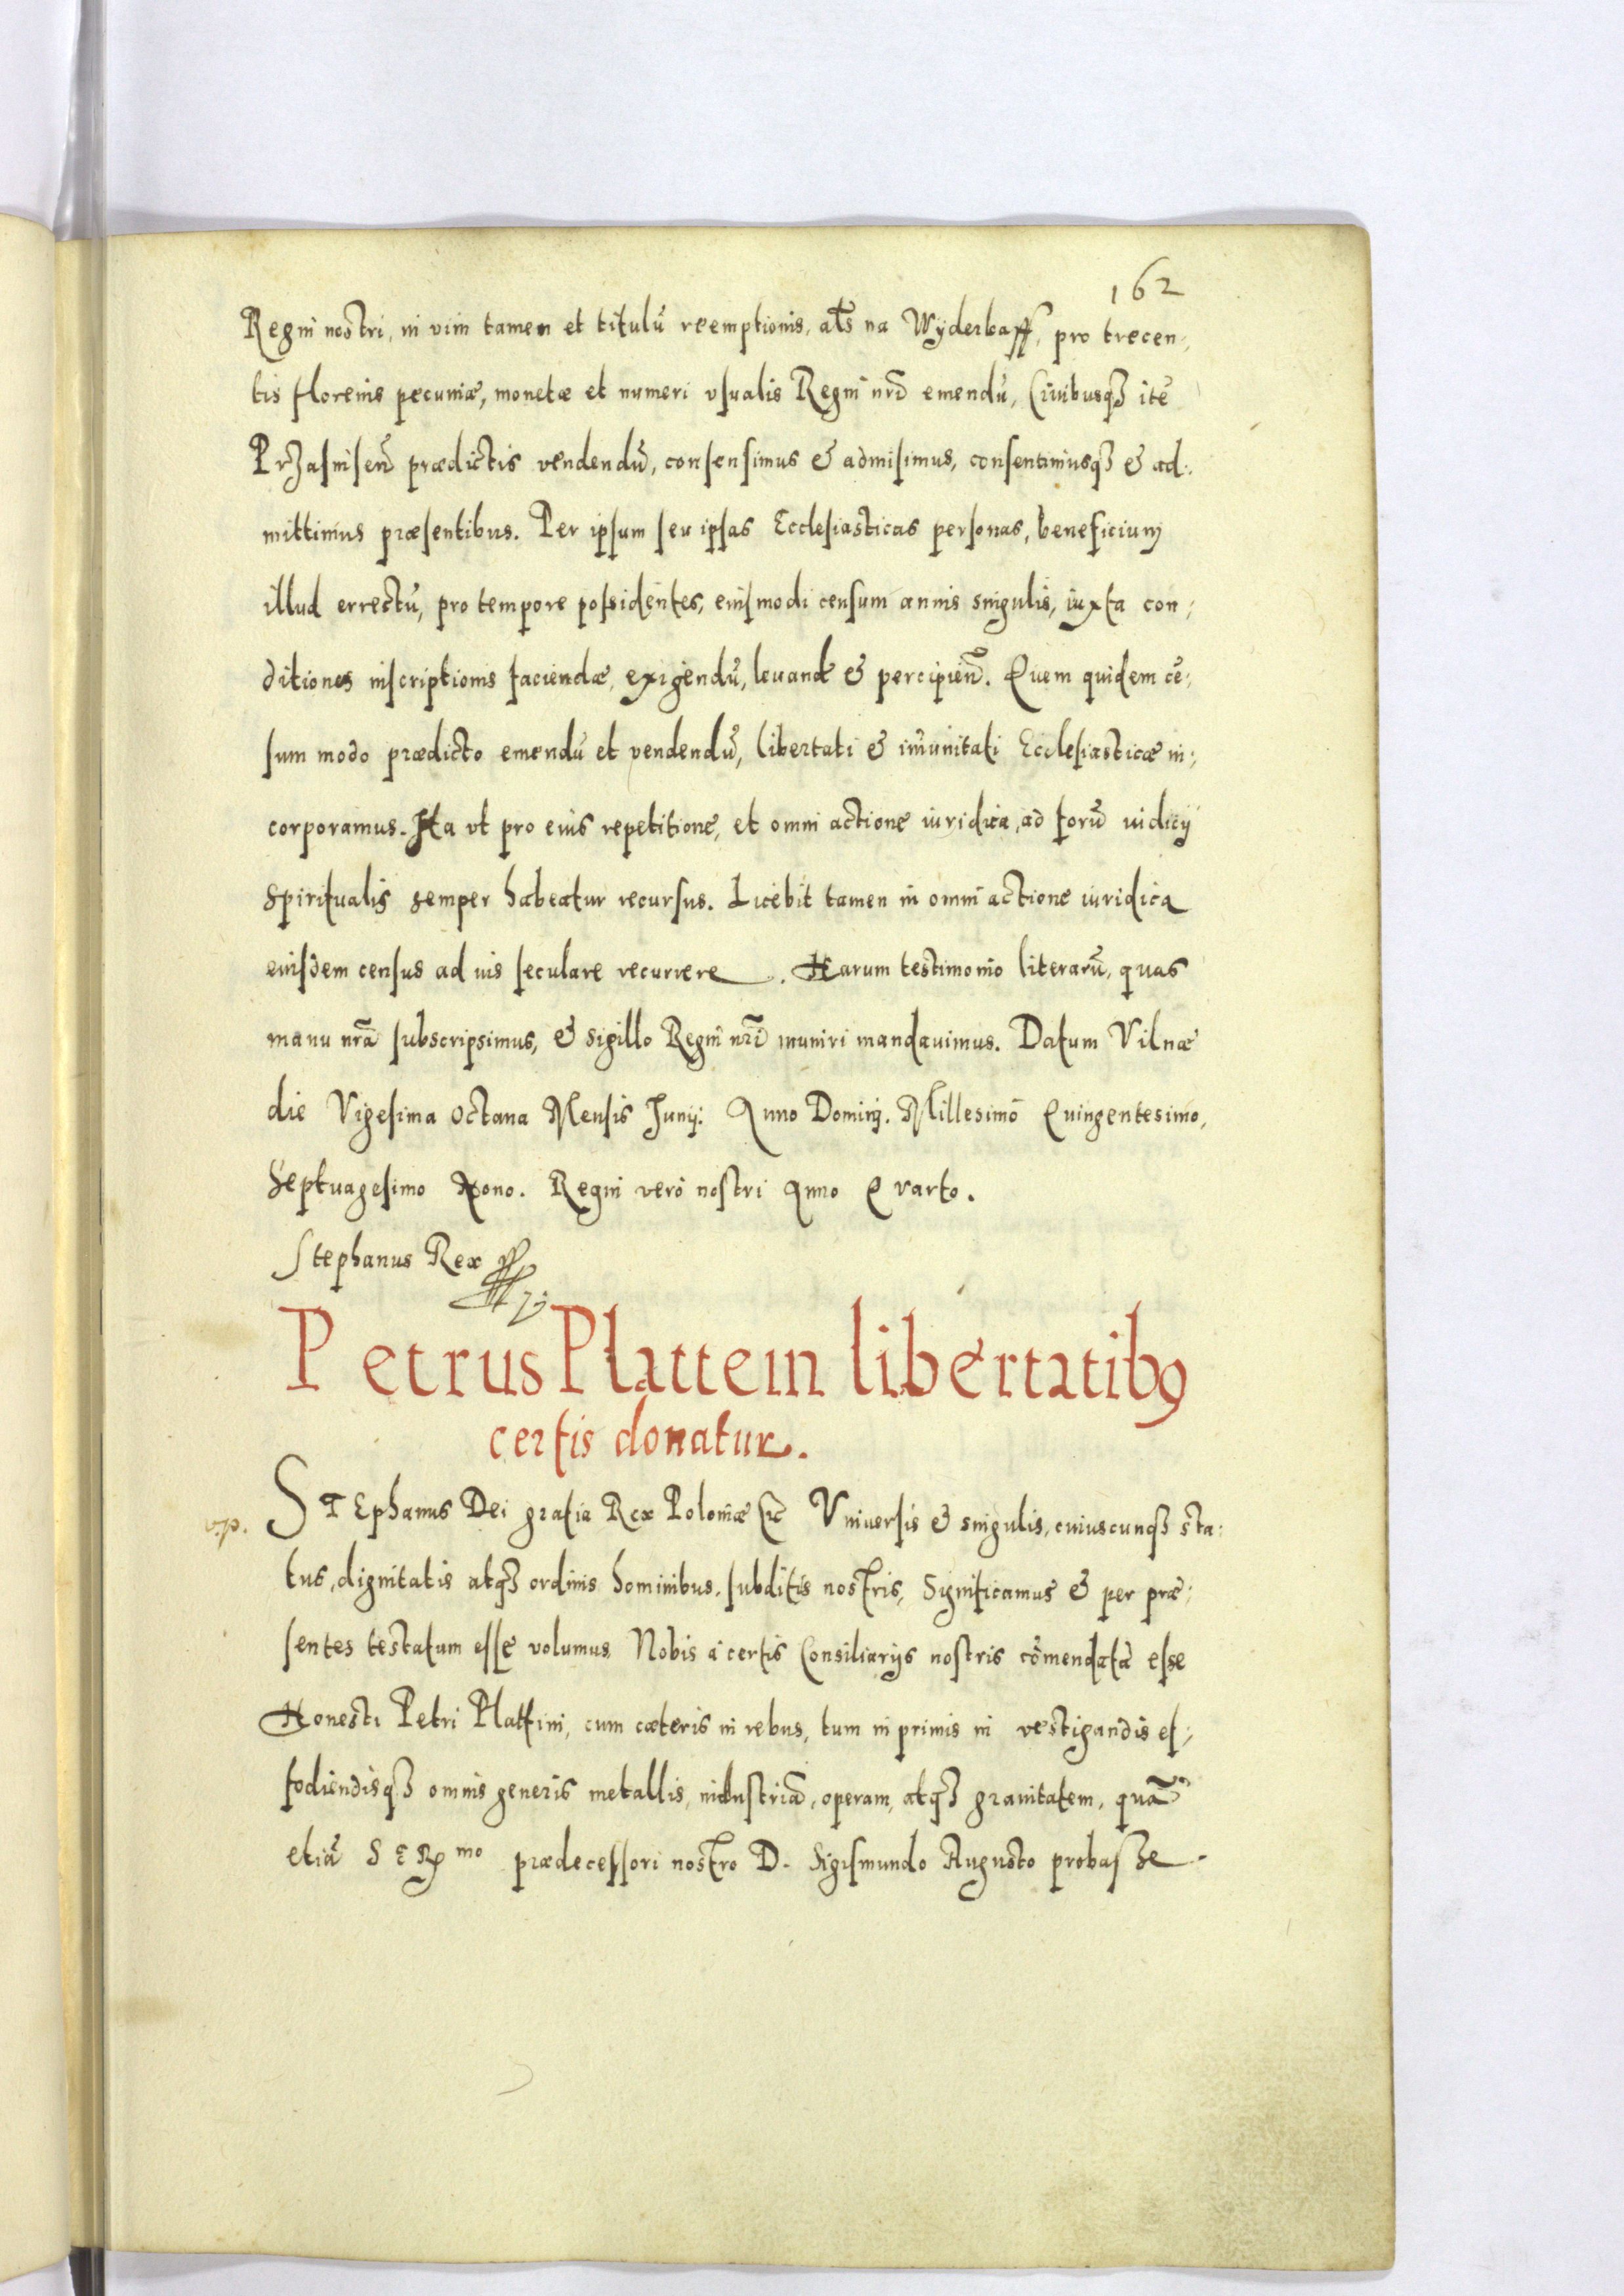 162
Regni nostri, in vim tamen et titulū reemptionis, als na Wyderkaff, pro trecen,
tis florenis pecuniæ, monetæ et numeri vsualis Regni nrī emendū, Ciuibusqȝ itē
Przasnisen̄ prædictis vendendū, consensimus & admisimus, consentimusqȝ & ad,
mittimus præsentibus. Per ipsum seu ipsas Ecclesiasticas personas, beneficium
illud errectū, pro tempore possidentes, eiusmodi censum annis singulis, iuxta con,
ditiones inscriptionis faciendæ, exigendū, leuand & percipien̄. Quem quidem cē,
sum modo prædicto emendū et vendendū, libertati & im̄unitati Ecclesiasticæ in,
corporamus. Ita vt pro eius repetitione, et omni actione iuridica, ad forū iudicij
Spiritualis semper habeatur recursus. Licebit tamen in omni actione iuridica
eiusdem census ad ius seculare recurrere. Harum testimonio literarū, quas
manu nrā subscripsimus, & sigillo Regni nrī muniri mandauimus. Datum Vilnæ
die Vigesima Octaua Mensis Junij. Anno Dominj. Millesimo Quingentesimo,
Septuagesimo Nono. Regni verò nostri Anno Quarto.
Stephanus Rex
Petrus Plattein libertatibꝰ
certis donatur.
v.p.
STEphanus Dei gratia Rex Poloniæ &c Vniuersis & singulis, cuiuscunqȝ sta,
tus, dignitatis atqȝ ordinis hominibus, subditis nostris, Significamus & per præ,
sentes testatum esse volumus Nobis à certis Consiliarijs nostris cōmendatā esse
Honesti Petri Plattini, cum cæteris in rebus, tum in primis in vestigandis ef,
fodiendisqȝ omnis generis metallis, industriā, operam, atqȝ grauitatem, quā
etiā SERmo prædecessori nostro D. Sigismundo Augusto probasse